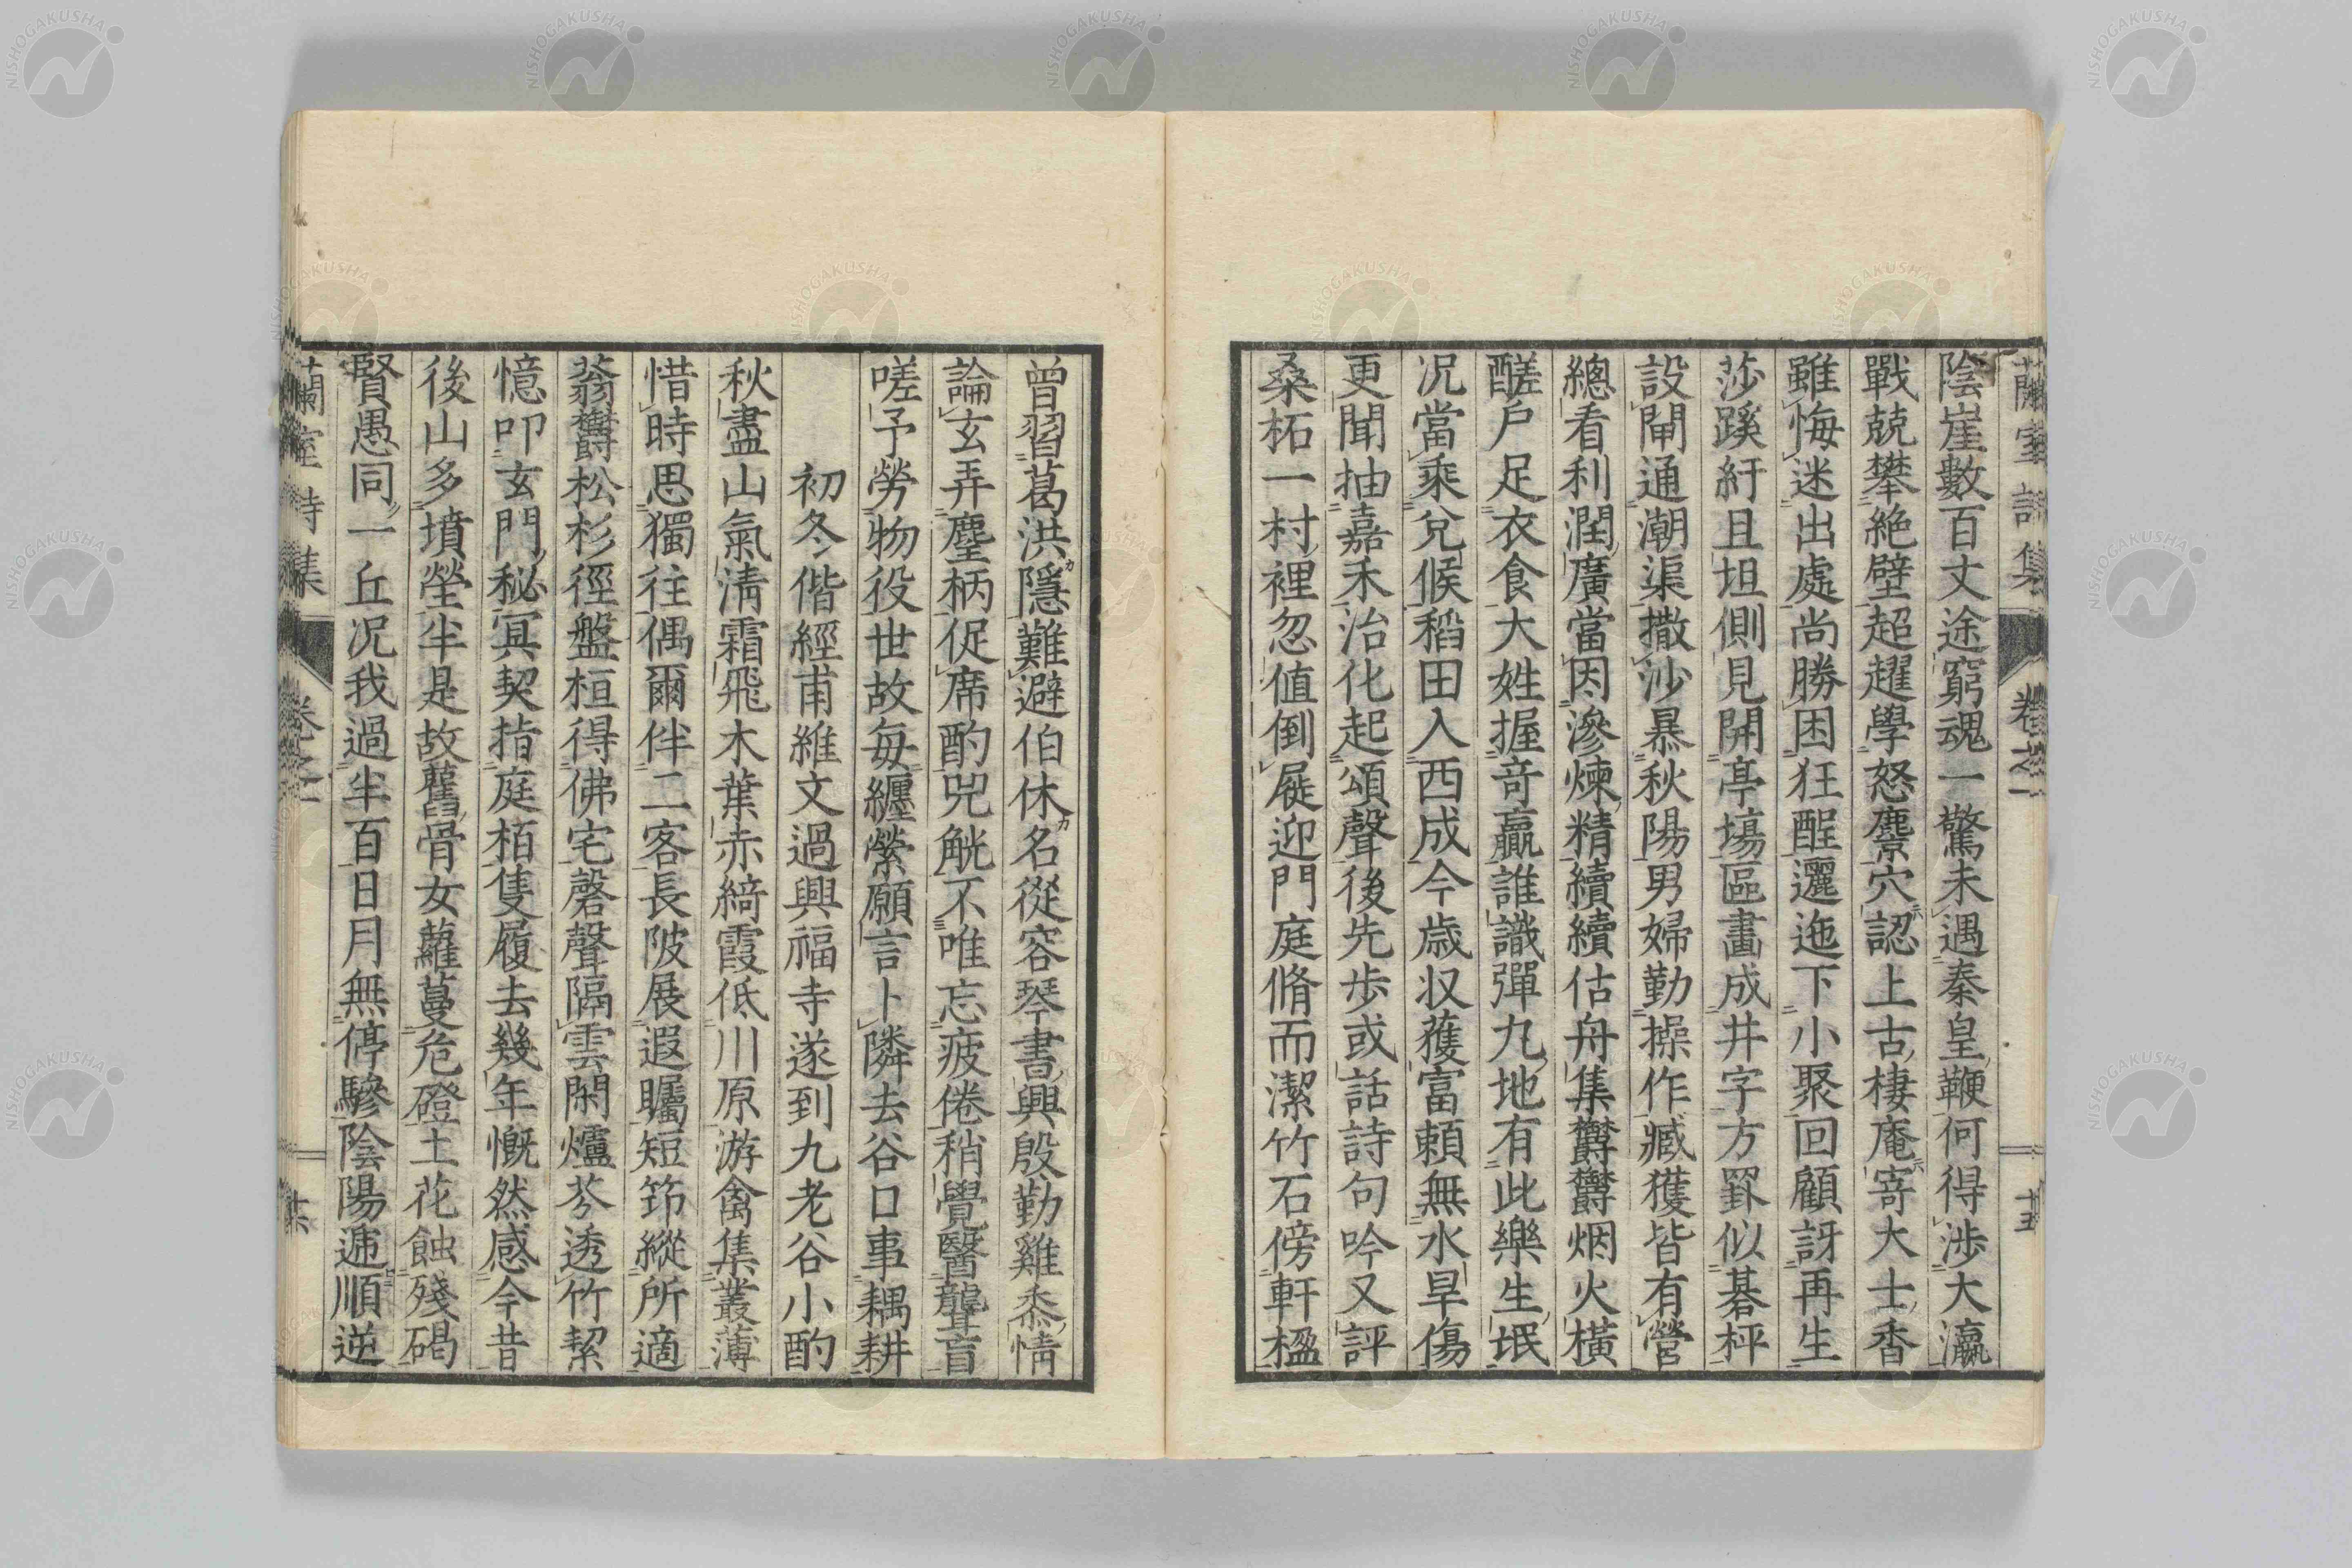 蘭室詩集 卷之一 十五
陰崖數百丈途窮魂一驚未遇秦皇鞭何得渉大瀛
戰兢攀絶壁超趯學怒麖穴認上古棲庵寄大士香
雖悔迷出處尚勝困狂酲邐迤下小聚回顧訝再生
莎蹊紆且坦側見開亭塲區畫成井字方罫似碁枰
設閘通潮渠撒沙暴秋陽男婦勤操作臧獲皆有營
總看利潤廣當因滲煉精續續估舟集欝欝烟火橫
醝戶足衣食大姓握竒贏誰識彈丸地有此樂生氓
况當乘兌候稻田入西成今歳収蓷富頼無水旱傷
更聞抽嘉禾治化起頌聲後先歩或話詩句吟又評
桑柘一村裡忽値倒屣迎門庭脩而潔竹石傍軒楹
曾習葛洪隱難避伯休名從容琴書興殷勤雞黍情
論玄弄麈柄促席酌兕觥不唯忘疲倦稍覺醫聾盲
嗟予勞物役世故每纏縈願言卜隣去谷口事耦耕
初冬偕經甫維文過興福寺遂到九老谷小酌
秋盡山氣清霜飛木葉赤綺霞低川原游禽集叢薄
惜時思獨往偶爾伴二客長陂展遐矚短笻縱所適
蓊欝松杉徑盤桓得佛宅磬聲隔雲閑爐芬透竹絜
憶叩玄門秘冥契指庭栢隻履去幾年慨然感今昔
後山多墳塋半是故舊骨女蘿蔓危磴土花蝕殘碣
賢愚同一丘况我過半百日月無停驂陰陽遞順逆
蘭室詩集 卷之一